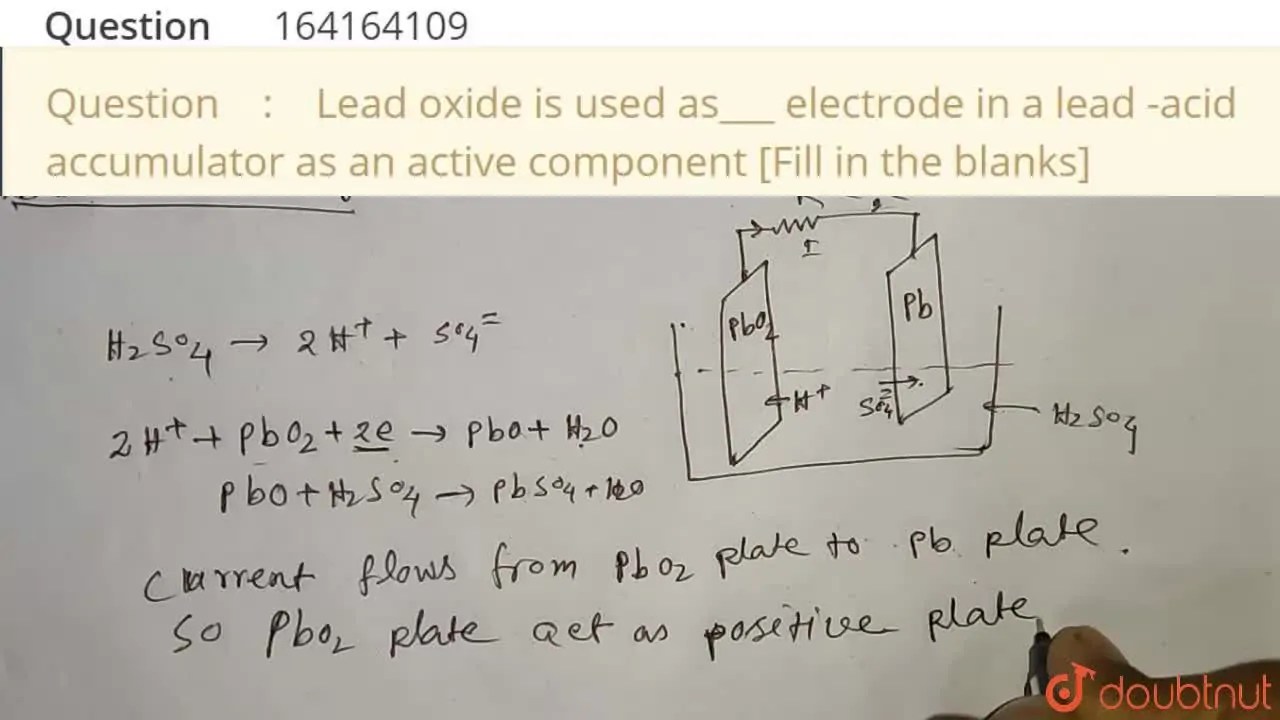 Question 164164109
Question : Lead oxide is used as___ electrode in a lead -acid
accumulator as an active component [Fill in the blanks]
I
PbO2
Pb
H2SO4 → 2H+ + SO4=
H+
SO4
H2SO4
2H+ + PbO2 + 2e → PbO + H2O
PbO + H2SO4 → PbSO4 + H2O
Current flows from PbO2 plate to Pb plate.
So PbO2 plate act as positive plate
doubtnut